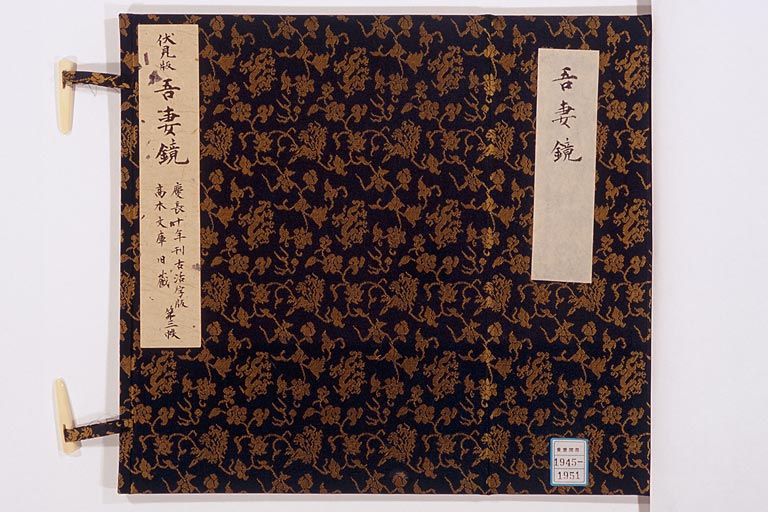 伏見版
吾妻鏡
慶長十年刊古活字版
高木文庫旧蔵
第三帙
吾妻鏡
1945-
1951